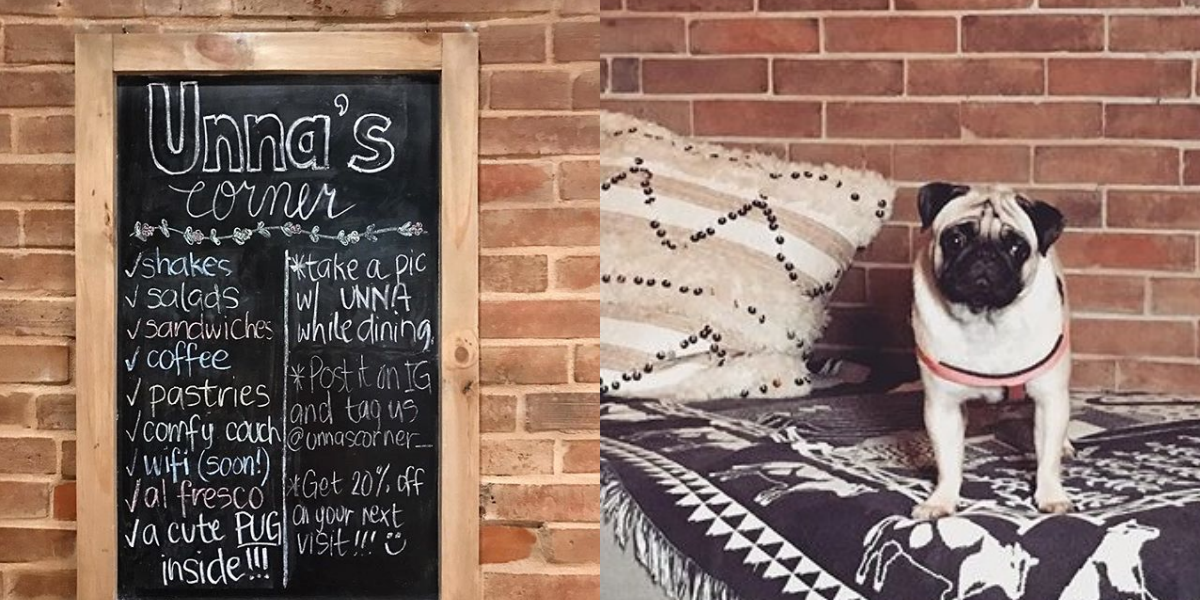 Unna's
corner
✓shakes
✓salads
✓sandwiches
✓coffee
✓pastries
✓comfy couch
✓wifi (soon!)
✓al fresco
✓a cute PUG
inside!!!
*take a pic
w/ UNNA
while dining.
*Post it on IG
and tag us
@unnascorner_
*Get 20% off
on your next
visit!!! :)